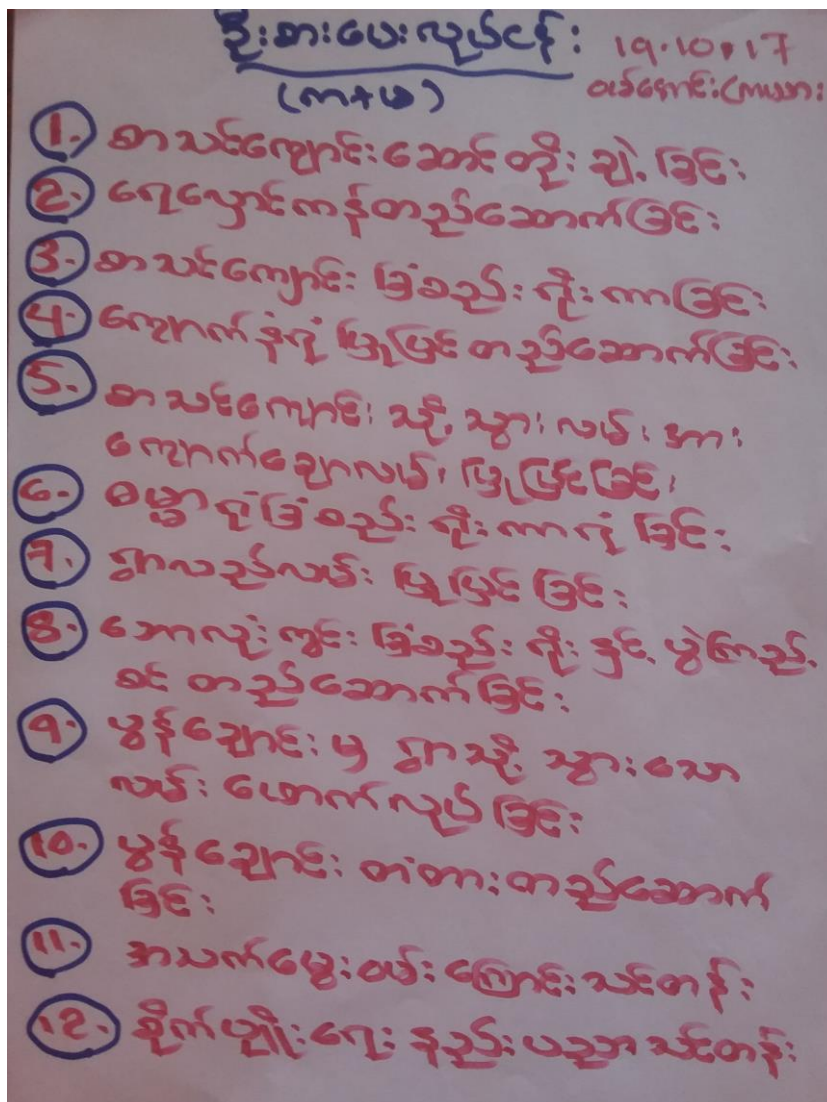 ဦးစားပေးလုပ်ငန်း
19.10.17
(ကာ+မ)
1. စာသင်ကျောင်းဆောင် တိုးချဲ့ခြင်း
2. ရေလှောင်ကန်တည်ဆောက်ခြင်း
3. စာသင်ကျောင်း ခြံစည်းရိုးကာခြင်း
4. ကျောက်နံရံ ပြုပြင် တည်ဆောက်ခြင်း
5. စာသင်ကျောင်း သို့ သွား လမ်း အား
ကျောက်ချောလမ်း ပြုပြင်ခြင်း
6. ဓမ္မာရုံခြံစည်းရိုးကာရံ ခြင်း
7. ရွာလည်လမ်း ပြုပြင် ခြင်း
8. ဘောလုံးကွင်း ခြံစည်းရိုးနှင့် ပွဲကြည့်
စင် တည်ဆောက်ခြင်း
9. မွန်ချောင်း မှ ရွာသို့ သွားသော
လမ်း ဖောက်လုပ်ခြင်း
10. မွန်ချောင်း တံတားတည်ဆောက်
ခြင်း
11. အသက်မွေးဝမ်းကြောင်းသင်တန်း
12. စိုက်ပျိုးရေးနည်းပညာသင်တန်း